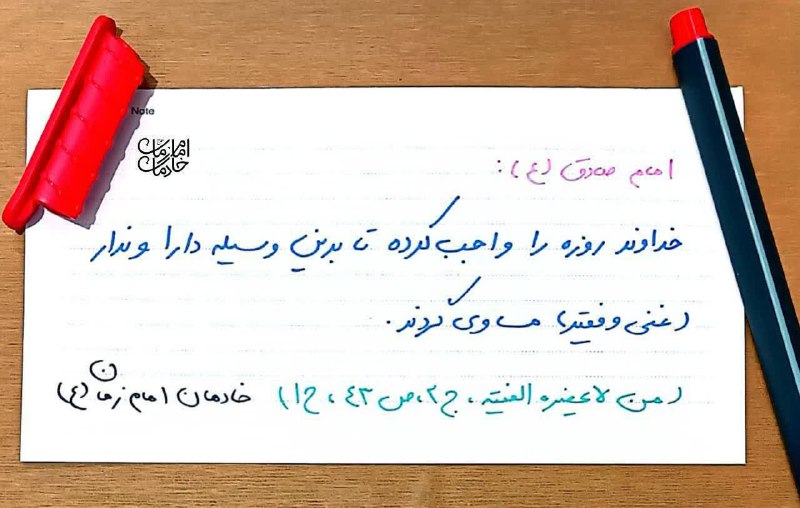 Note
خادمان امام زمان
امام صادق (ع):
خداوند روزه را واجب کرده تا بدین وسیله دارا و ندار
(غنی و فقیر) مساوی گردند.
(من لا یحضره الفقیه، ج ۲، ص ۴۳، ح ۱) خادمان امام زمان (ع)